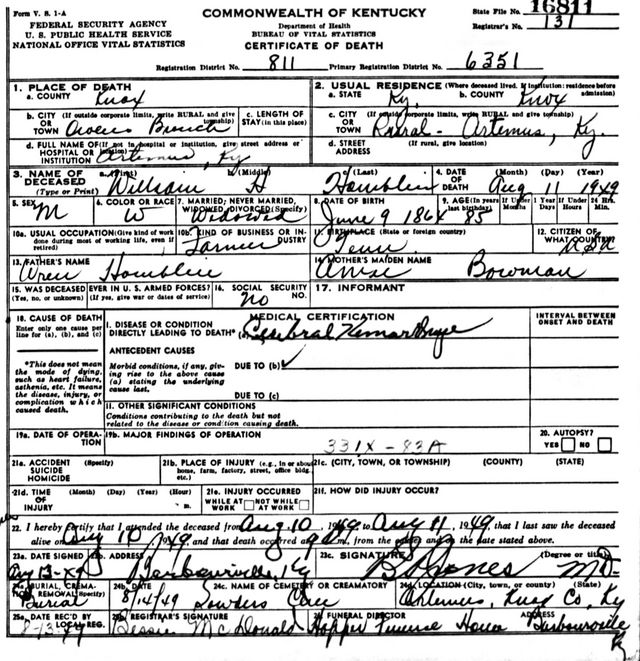 Form V. S. 1-A
FEDERAL SECURITY AGENCY
U. S. PUBLIC HEALTH SERVICE
NATIONAL OFFICE VITAL STATISTICS
COMMONWEALTH OF KENTUCKY
Department of Health
BUREAU OF VITAL STATISTICS
CERTIFICATE OF DEATH
State File No. 16811
Registrar's No. 131
Registration District No. 811 Primary Registration District No. 6351
1. PLACE OF DEATH
a. COUNTY Knox
2. USUAL RESIDENCE (Where deceased lived. If institution: residence before admission)
a. STATE Ky. b. COUNTY Knox
b. CITY (If outside corporate limits, write RURAL and give township) OR TOWN
c. LENGTH OF STAY (in this place)
c. CITY (If outside corporate limits, write RURAL and give township) OR TOWN Rural - Artemus, Ky.
d. FULL NAME OF (If not in hospital or institution, give street address or location) HOSPITAL OR INSTITUTION Artemus, Ky
d. STREET ADDRESS (If rural, give location)
3. NAME OF DECEASED (Type or Print) a. (First) William b. (Middle) H c. (Last) Hamblin
4. DATE OF DEATH (Month) (Day) (Year) Aug 11 1949
5. SEX M
6. COLOR OR RACE W
7. MARRIED; NEVER MARRIED, WIDOWED, DIVORCED (Specify) Widowed
8. DATE OF BIRTH June 9 1864
9. AGE (In years last birthday) 85 If Under 1 Year Months Days If Under 24 Hrs. Hours Min.
10a. USUAL OCCUPATION (Give kind of work done during most of working life, even if retired) Farmer
10b. KIND OF BUSINESS OR INDUSTRY
11. BIRTHPLACE (State or foreign country) Tenn.
12. CITIZEN OF WHAT COUNTRY? USA
13. FATHER'S NAME Hamblin
14. MOTHER'S MAIDEN NAME Bowman
15. WAS DECEASED EVER IN U. S. ARMED FORCES? (Yes, no, or unknown) (If yes, give war or dates of service)
16. SOCIAL SECURITY NO. no
17. INFORMANT
18. CAUSE OF DEATH
Enter only one cause per line for (a), (b), and (c)
*This does not mean the mode of dying, such as heart failure, asthenia, etc. It means the disease, injury, or complication which caused death.
MEDICAL CERTIFICATION
I. DISEASE OR CONDITION DIRECTLY LEADING TO DEATH* (a) Cerebral Hemorrhage
INTERVAL BETWEEN ONSET AND DEATH
ANTECEDENT CAUSES
Morbid conditions, if any, giving rise to the above cause (a) stating the underlying cause last.
DUE TO (b)
DUE TO (c)
II. OTHER SIGNIFICANT CONDITIONS
Conditions contributing to the death but not related to the disease or condition causing death.
19a. DATE OF OPERATION
19b. MAJOR FINDINGS OF OPERATION
331X-83A
20. AUTOPSY? YES NO
21a. ACCIDENT SUICIDE HOMICIDE (Specify)
21b. PLACE OF INJURY (e.g., in or about home, farm, factory, street, office bldg., etc.)
21c. (CITY, TOWN, OR TOWNSHIP) (COUNTY) (STATE)
21d. TIME OF INJURY (Month) (Day) (Year) (Hour) m.
21e. INJURY OCCURRED WHILE AT WORK NOT WHILE AT WORK
21f. HOW DID INJURY OCCUR?
22. I hereby certify that I attended the deceased from Aug 10, 1949 to Aug 11, 1949, that I last saw the deceased
alive on Aug 10, 1949, and that death occurred at 9 m., from the causes and on the date stated above.
23a. DATE SIGNED Aug 13-49
23b. ADDRESS Barbourville, Ky
23c. SIGNATURE Jones (Degree or title) M.D.
24a. BURIAL, CREMATION, REMOVAL (Specify) Burial
24b. DATE 8/14/49
24c. NAME OF CEMETERY OR CREAMATORY
24d. LOCATION (City, town, or county) (State) Artemus, Knox Co, Ky
25a. DATE REC'D BY LOCAL REG. 8-13-49
25b. REGISTRAR'S SIGNATURE Bessie McDonald
26. FUNERAL DIRECTOR ADDRESS Hopper Funeral Home Barbourville Ky